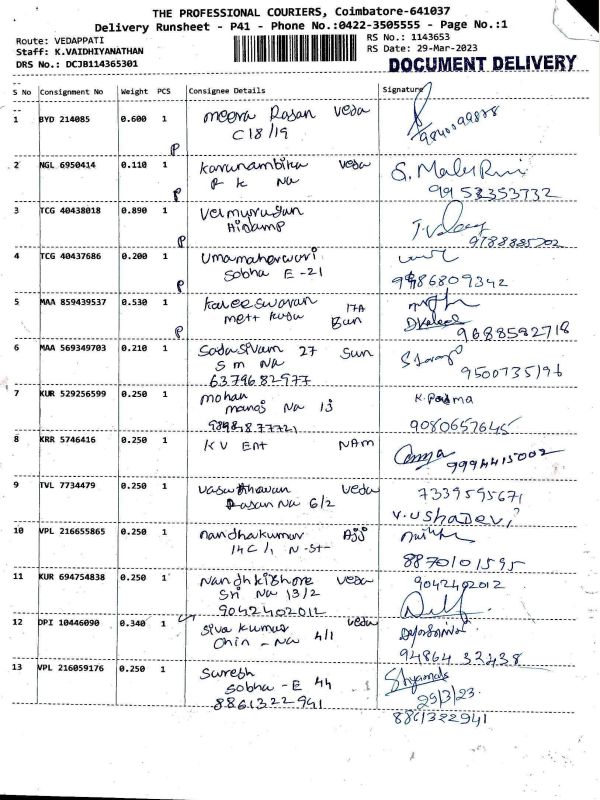 THE PROFESSIONAL COURIERS, Coimbatore-641037
Delivery Runsheet - P41 - Phone No.:0422-3505555 - Page No.:1
Route: VEDAPPATI RS No.: 1143653
Staff: K.VAIDHIYANATHAN RS Date: 29-Mar-2023
DRS No.: DCJB114365301 DOCUMENT DELIVERY
S No Consignment No Weight PCS Consignee Details Signature
1 BYD 214085 0.600 1 meera Rasan veda
C18/19
P
2 NGL 6950414 0.110 1 karunambika veda
P K Na 9953353732
P
3 TCG 40438018 0.890 1 velmurugan
P 9788885702
4 TCG 40437686 0.200 1 Umamaheswari
Sobha E-21 9486809342
P
5 MAA 859439537 0.530 1 kaleeswaran 17A
mett kuda Bun
P 9688592718
6 MAA 569349703 0.210 1 Sadasivam 27 Sun
S m Na 9500735196
6379682977
7 KUR 529256599 0.250 1 mohan K. Padma
manoj Na 13
9080657645
8 KRR 5746416 0.250 1 K V Ent NAm
9994415002
9 TVL 7734479 0.250 1 vasuthavan veda 7339595671
Rasan Na 6/2 V.UshaDevi
10 VPL 216655865 0.250 1 nandhakumar Ajj
14C/1 N-St- 8870101595
11 KUR 694754838 0.250 1 Nandhkishore veda 9042402012
Sri Na 13/2
9042402012
12 DPI 10446090 0.340 1 Siva kumar veda
Chin - Na 4/1 94864 32438
13 VPL 216059176 0.250 1 Suresh Shyamala
Sobha - E 44 29/3/23.
8861322941 8861322941